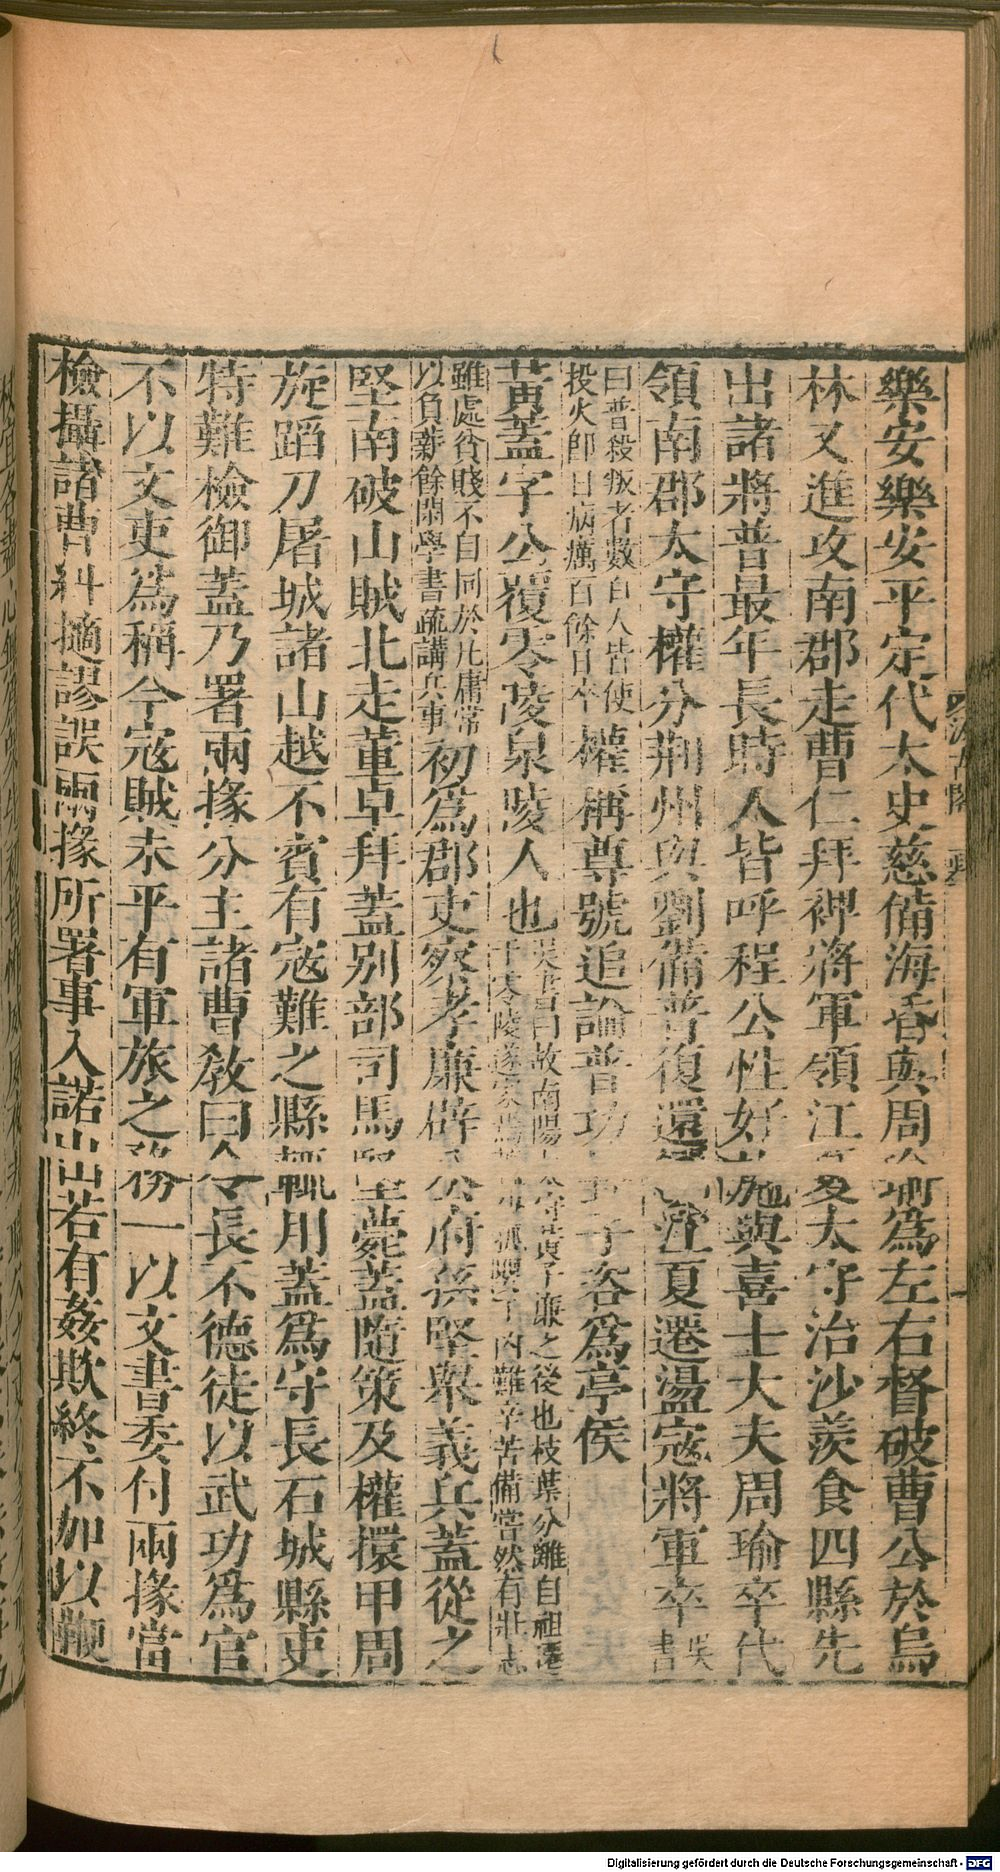 樂安樂安平定代太史慈備海昏與周瑜爲左右督破曹公於烏
林又進攻南郡走曹仁拜裨將軍領江夏太守治沙羡食四縣先
出諸將普最年長時人皆呼程公性好施與喜士大夫周瑜卒代
領南郡太守權分荆州與劉備普復還江夏遷盪寇將軍卒吳書
曰普殺叛者數百人皆使
投火卽日病癘百餘日卒權稱尊號追論普功子咨爲亭侯
黃蓋字公覆零陵泉陵人也吳書曰故南陽太守黃子廉之後也枝葉分離自祖遷
于零陵遂家焉蓋少孤嬰丁凶難辛苦備嘗然有壯志
雖處貧賤不自同於凡庸常
以負薪餘閒學書疏講兵事初爲郡吏察孝廉辟公府孫堅舉義兵蓋從之
堅南破山賊北走董卓拜蓋別部司馬堅薨蓋隨策及權擐甲周
旋蹈刀屠城諸山越不賓有寇難之縣輒用蓋爲守長石城縣吏
特難檢御蓋乃署兩掾分主諸曹敎曰令長不德徒以武功爲官
不以文吏爲稱今寇賊未平有軍旅之務一以文書委付兩掾當
檢攝諸曹糾擿謬誤兩掾所署事入諾出若有姦欺終不加以鞭
汲古閣
Digitalisierung gefördert durch die Deutsche Forschungsgemeinschaft - DFG